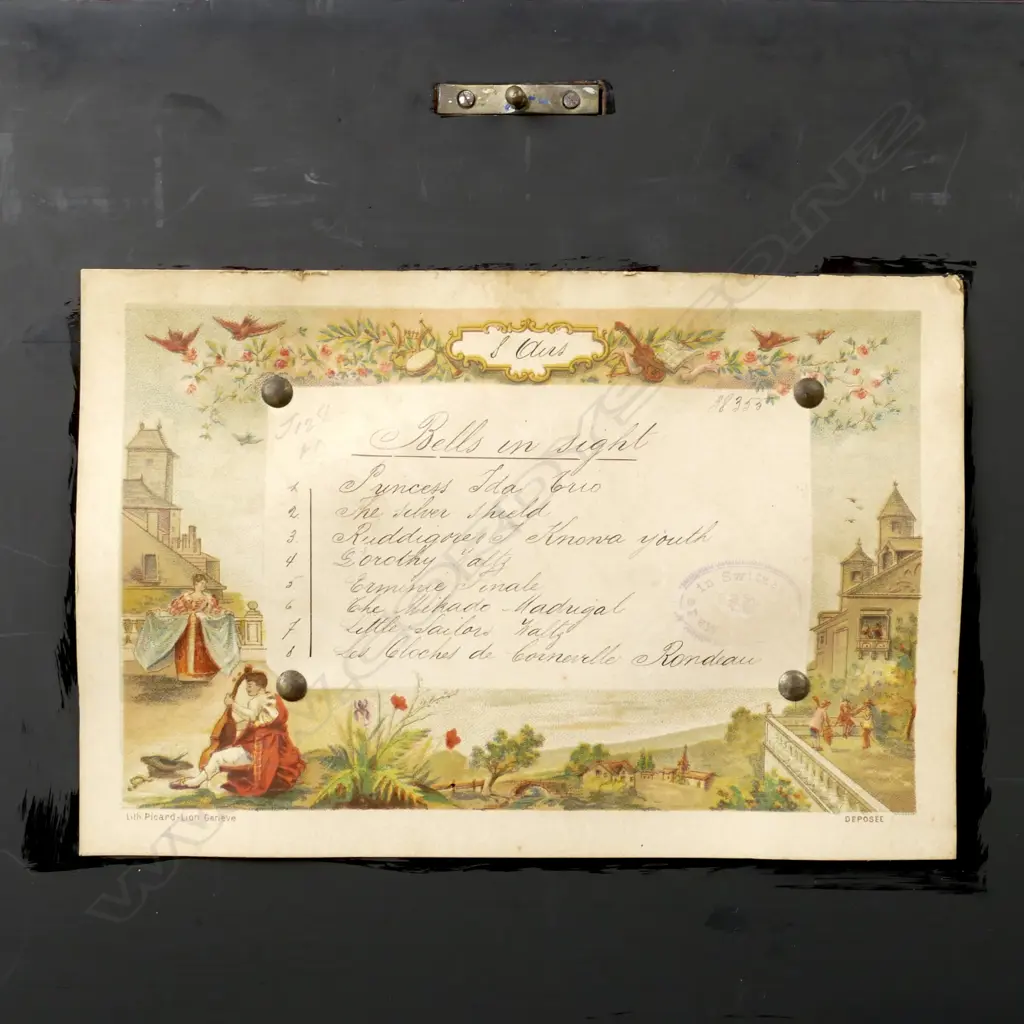 8 Airs
28355
Bells in sight
1 Princess Ida Trio
2 The silver shield
3. Ruddigore I Knowa youth
4 Dorothy Waltz
5 Erminie Finale
6 The Mikado Madrigal
7 Little Sailors Waltz
8 Les Cloches de Corneville Rondeau
Lith Picard-Lion Genève
DEPOSÉE